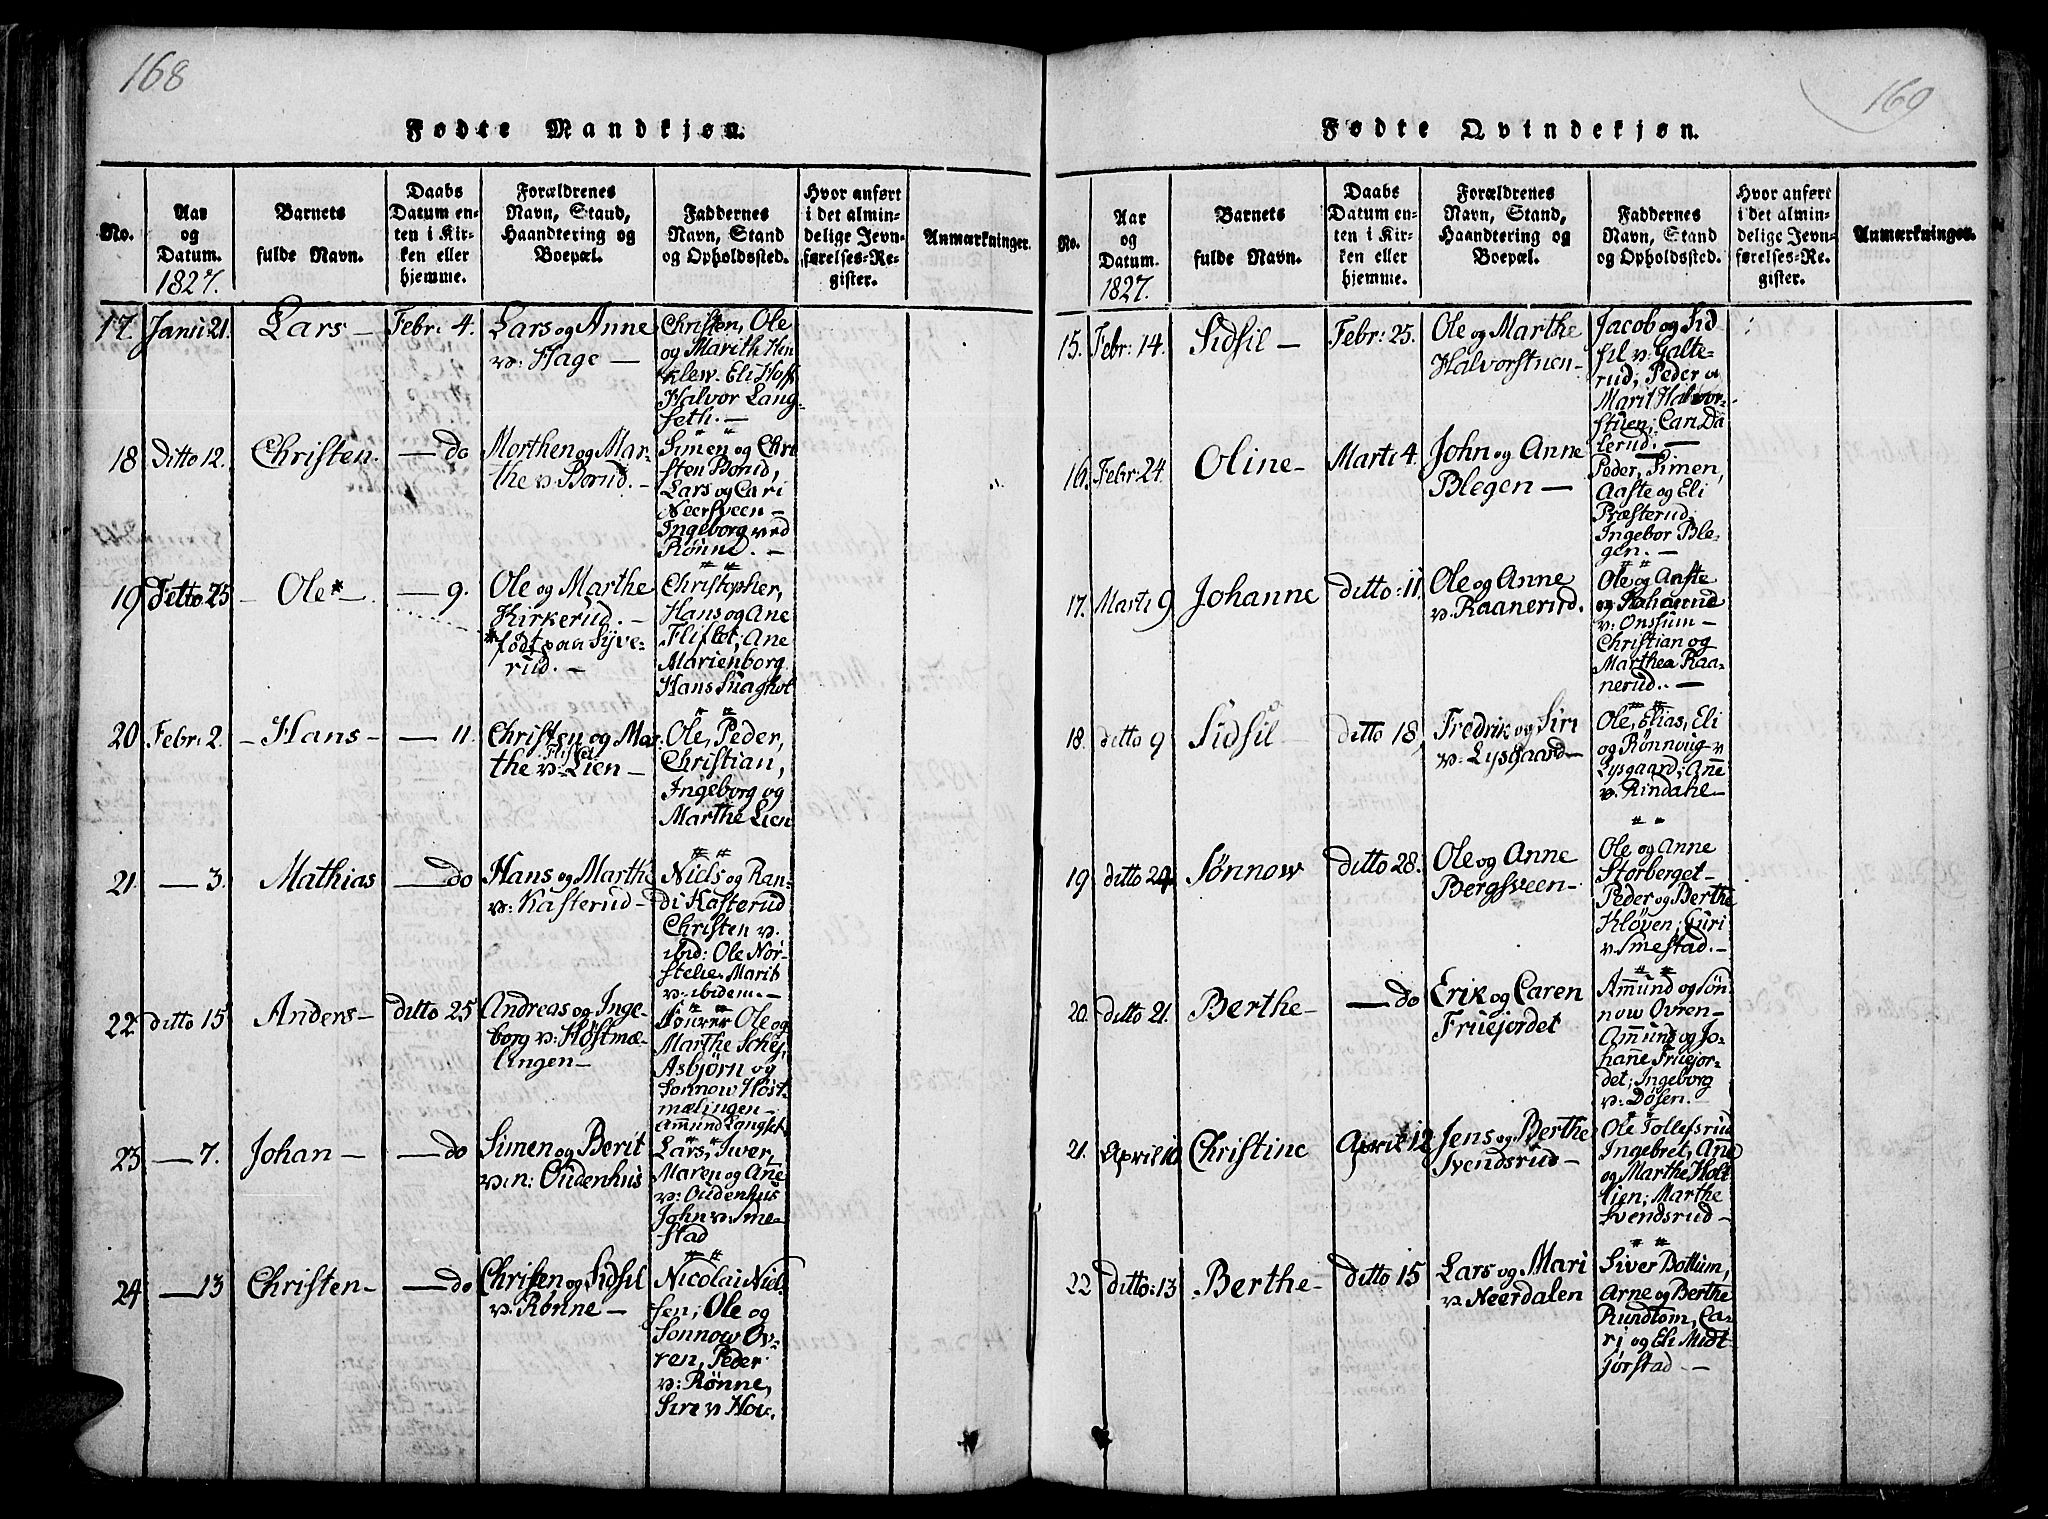 168
Fødte Mandkjøn.
No.
Aar
og
Datum.
1827.
Barnets
fulde Navn.
Daabs
Datum en-
ten i Kir-
ken eller
hjemme.
Forældrenes
Navn, Stand,
Haandtering og
Boepæl.
Faddernes
Navn, Stand
og Opholdssted.
Hvor anført
i det almin-
delige Jevn-
førelses-Re-
gister.
Anmærkninger.
17. Janu: 21. Lars — Febr: 4.
Lars og Anne
v: Hage —
Christen, Ole
og Marith Hen
klev. Eli Hoff
Halvor Lang-
seth. —
18 Ditto 12. Christen. — do
Morthen og Mar-
the v: Borud. —
Simen og Chri
sten Borud,
Lars og Cari
Neersveen —
Ingeborg ved
Rønne. —
19 Ditto 25 — Ole* — — 9.
Ole og Marthe
Kirkerud. —
* født paa Syve-
rud. —
Christopher,
Hans og Ane
Fliflet, Ane
Marienborg.
Hans
20 Febr: 2. — Hans — — 11.
Christen og Mar-
the v: Lien —
Ole, Peder,
Christian,
Ingeborg og
Marthe Lien
21. — 3. Mathias — do
Hans og Marthe
v: Kasterud —
Niels og Ran-
di Kasterud
Christen v.
ibid: Ole Nor-
stelie. Marit
v: ibidem. —
22. ditto 15 Anders — ditto 25
Andreas og Inge-
borg v: Høstmæ-
lingen —
Ole og
Marthe Schej,
Asbjørn og
Sønnow Høst-
mælingen —
Ammund Langset
23 — 7. Johan — — do
Simen og Berit
v: Oudenhus
Lars, Iwer,
Maren og Ane
v: Oudenhus
John v: Sme-
stad
24 — 13 Christen — — do
Christen og Sidsil
v: Rønne —
Nicolai Niel-
sen, Ole og
Sonnow Ov-
ren, Peder
v: Rønne,
Sire v Hov.
169
Fødte Qvindekjøn.
No.
Aar
og
Datum.
1827.
Barnets
fulde Navn.
Daabs
Datum en-
ten i Kir-
ken eller
hjemme.
Forældrenes
Navn, Stand,
Haandtering og
Boepæl.
Faddernes
Navn, Stand
og Opholdssted.
Hvor anført
i det almin-
delige Jevn-
førelses-Re-
gister.
Anmærkninger.
15. Febr: 14. Sidsil — Febr: 25.
Ole og Marthe
Halvorstuen —
Jacob og Sid
sil v: Galte-
rud; Peder og
Marit Halvor-
stuen; Cari Da
lerud: —
16. Febr: 24. Oline — Marti 4.
John og Anne
Blegen —
Peder, Simen,
Aaste og Eli
Præsterud;
Ingebor Ble-
gen. —
17. Marti 9 Johanne ditto: 11.
Ole og Anne
v: Raanerud.
Ole og Aaste
v: Onssum —
Christian og
Marthea Raa-
nerud. —
18. ditto 9 Sidsil — ditto 18
Fredrik og Siri
v: Lysgaard —
Ole, Elias, Eli
og Rønnoug v
Lysgaard; Anne
v: Rindahl —
19 ditto 24 Sønnow ditto 28.
Ole og Anne
Bergsveen —
Ole og Anne
Storberget —
Peder og Berthe
Kløven, Guri
v: Smestad. —
20. ditto 21. Berthe — — do
Erik og Caren
Fruejordet
Ammund og Søn-
now Ovren —
Ammund og Jo-
hanne Fruejor-
det; Ingeborg
v: Døsen. —
21. April 10 Christine April 12
Jens og Berthe
Svendsrud —
Ole Tollefsrud
Ingebret, Ane
og Marthe Holt-
lien; Marthe
Svendsrud —
22 ditto: 13 Berthe — ditto 15
Lars og Mari
v: Neerdalen
Siver Bottum,
Arne og Berthe
Rundtom, Ca-
ri og Eli Midt-
jørstad —